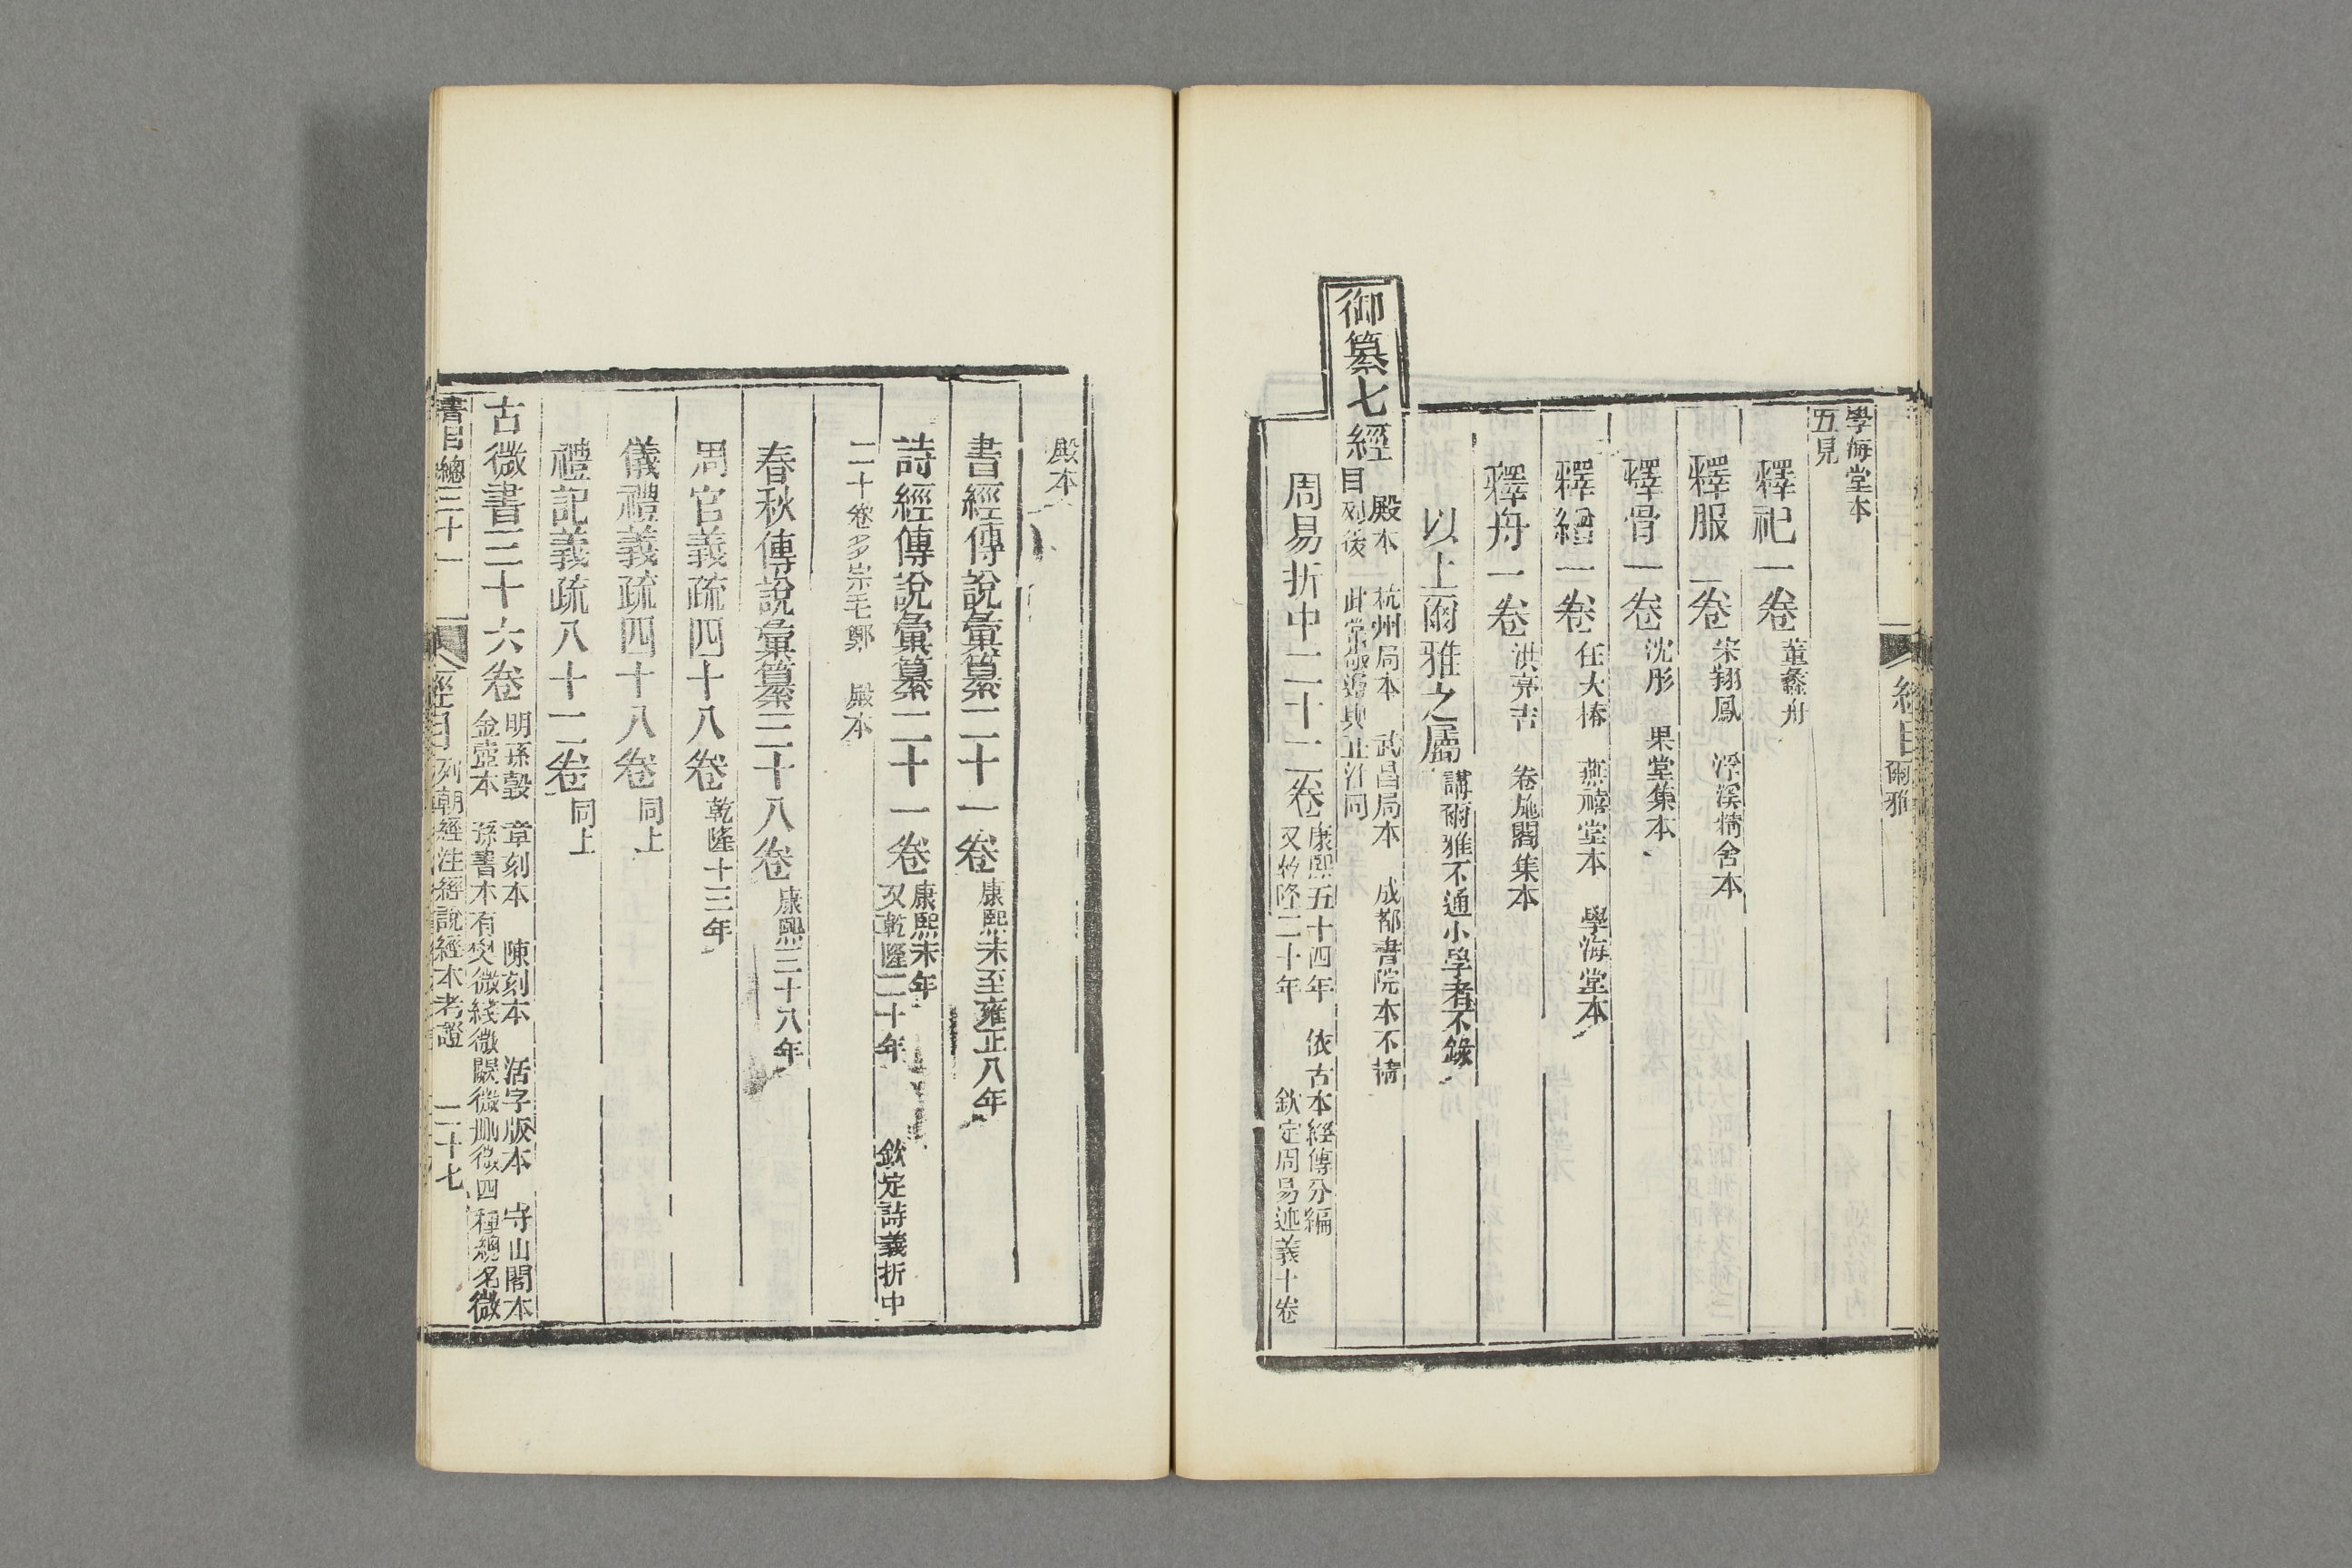 經目 爾雅
學海堂本
五見
釋祀一卷 董蠡舟
釋服一卷 宋翔鳳 浮溪精舍本
釋骨一卷 沈彤 果堂集本
釋繒一卷 任大椿 燕禧堂本 學海堂本
釋舟一卷 洪亮吉 卷施閣集本
以上爾雅之屬 講爾雅不通小學者不錄
御纂七經 殿本 杭州局本 武昌局本 成都書院本不精
目列後
周易折中二十二卷 康熙五十四年 依古本經傳分編
又乾隆二十年 欽定周易述義十卷
殿本
書經傳說彙纂二十一卷 康熙末至雍正八年
詩經傳說彙纂二十一卷 康熙末年
又乾隆二十年 欽定詩義折中
二十卷多宗毛鄭 殿本
春秋傳說彙纂三十八卷 康熙三十八年
周官義疏四十八卷 乾隆十三年
儀禮義疏四十八卷 同上
禮記義疏八十二卷 同上
古微書三十六卷 明孫瑴 章刻本 陳刻本 活字版本 守山閣本
金壺本 孫書本有焚微綫微闕微刪微四種總名微
書目總三十一 經目 列朝經注經說經本考證 二十七